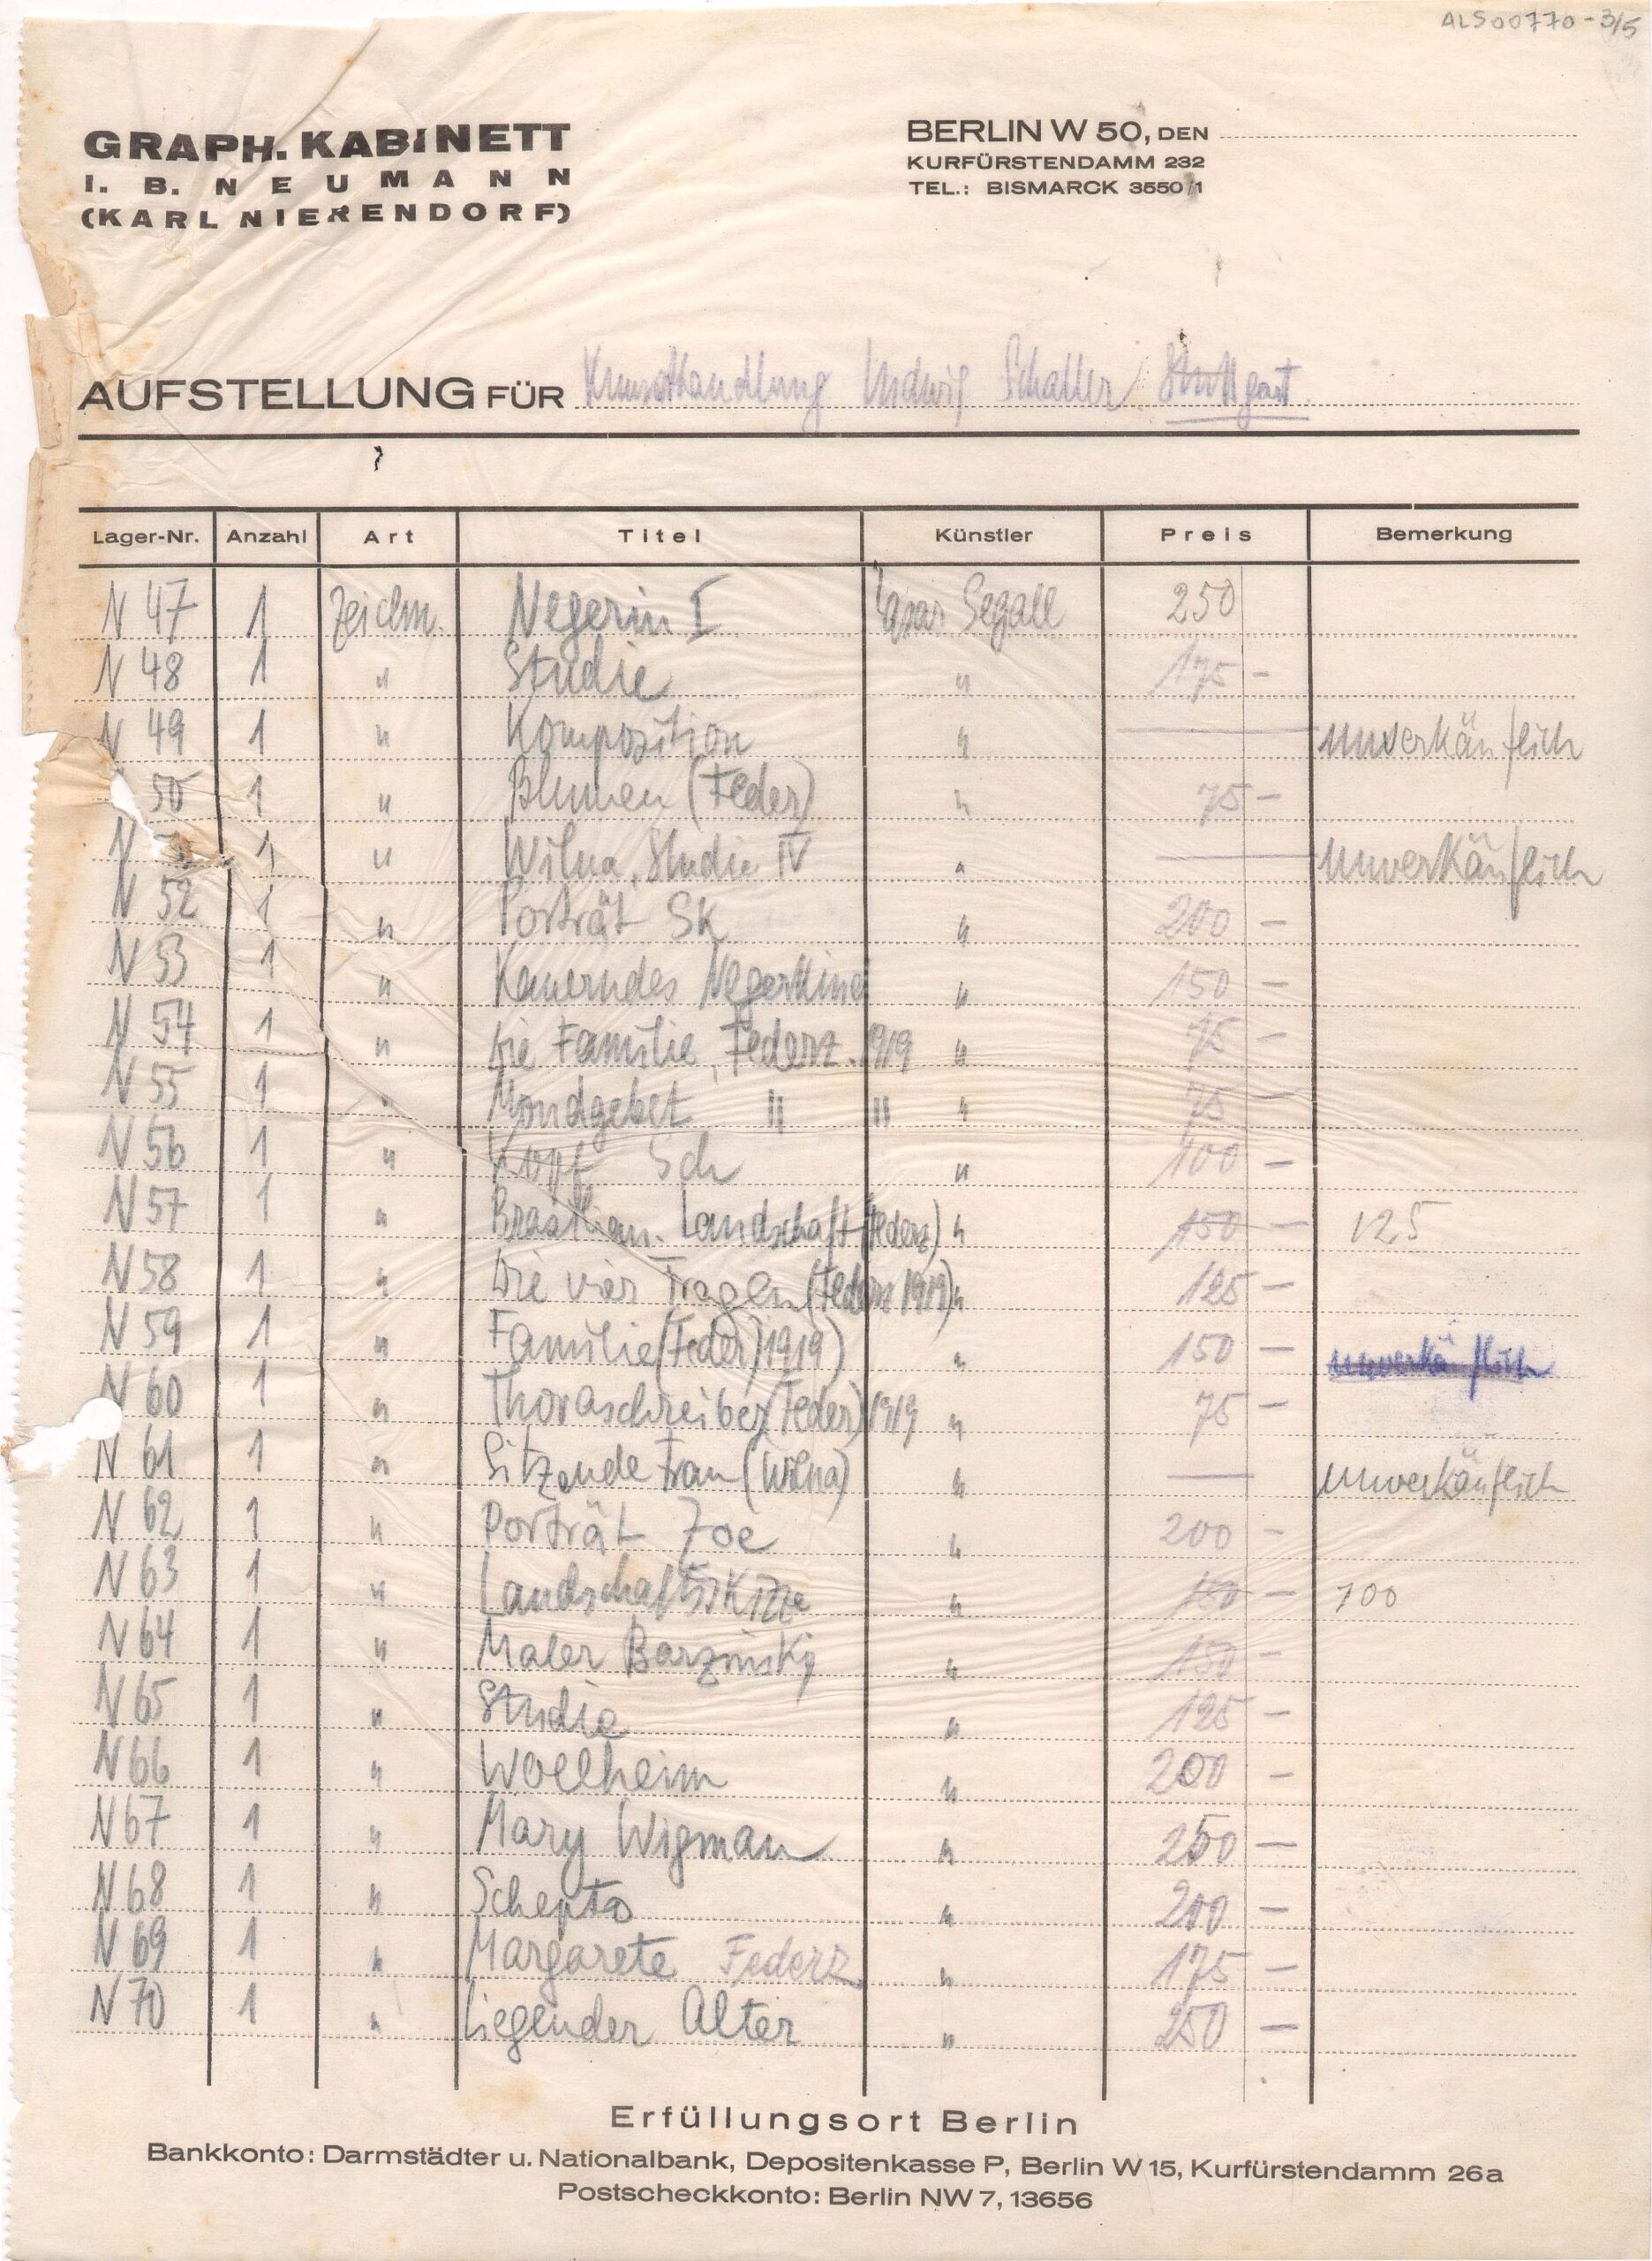 ALS00770-3/5
GRAPH. KABINETT
I. B. NEUMANN
(KARL NIERENDORF)
BERLIN W 50, DEN
KURFÜRSTENDAMM 232
TEL.: BISMARCK 3550/1
AUFSTELLUNG FÜR Kunsthandlung Ludwig Schaller Stuttgart
Lager-Nr. Anzahl Art Titel Künstler Preis Bemerkung
N 47 1 Zeichn. Negerin I Lasar Segall 250
N 48 1 " Studie " 175 -
N 49 1 " Komposition " — unverkäuflich
50 1 " Blumen (Feder) " 75 -
N 1 " Wilna, Studie IV " — unverkäuflich
N 52 1 " Porträt SK " 200 -
N 53 1 " Kauerndes Negerkind " 150 -
N 54 1 " Die Familie, Federz. 1919 " 75 -
N 55 1 " Mondgebet " " " 75 -
N 56 1 " Kopf Sch " 100 -
N 57 1 " Brasilian. Landschaft (Federz) " 150 - 125
N 58 1 " Die vier Fragen (Federz 1919) " 125 -
N 59 1 " Familie (Feder) 1919) " 150 - unverkäuflich
N 60 1 " Thoraschreiber (Feder) 1919 " 75 -
N 61 1 " Sitzende Frau (Wilna) " — unverkäuflich
N 62 1 " Porträt Zoe " 200 -
N 63 1 " Landschaftsskizze " 150 - 100
N 64 1 " Maler Barzinski " 150 -
N 65 1 " Studie " 125 -
N 66 1 " Wollheim " 200 -
N 67 1 " Mary Wigman " 250 -
N 68 1 " " 200 -
N 69 1 " Margarete Federz " 175 -
N 70 1 " Liegender Alter " 250 -
Erfüllungsort Berlin
Bankkonto: Darmstädter u. Nationalbank, Depositenkasse P, Berlin W 15, Kurfürstendamm 26a
Postscheckkonto: Berlin NW 7, 13656